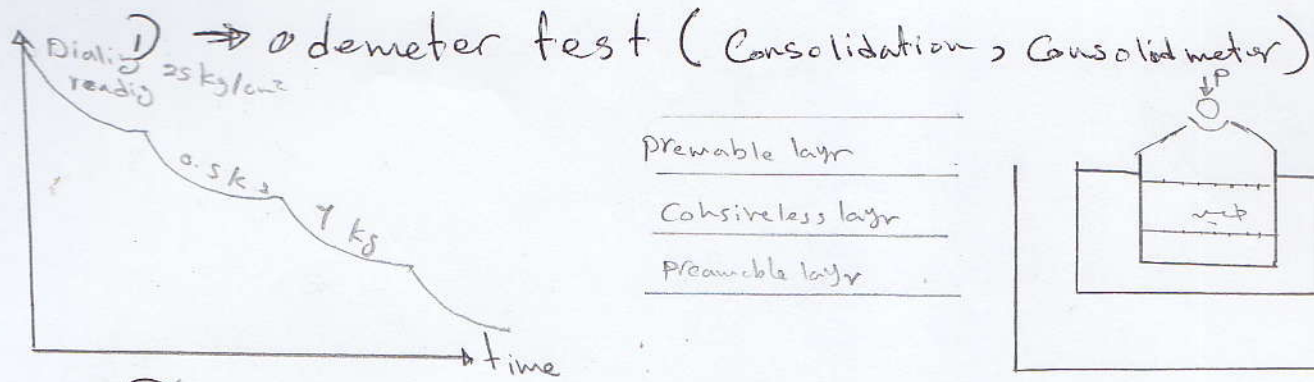 1) → odemeter test (Consolidation, Consolidmeter)
Dialing
readig
25 kg/cm²
0.5 kg
1 kg
time
premable layr
Cohsireless layr
preamable layr
P